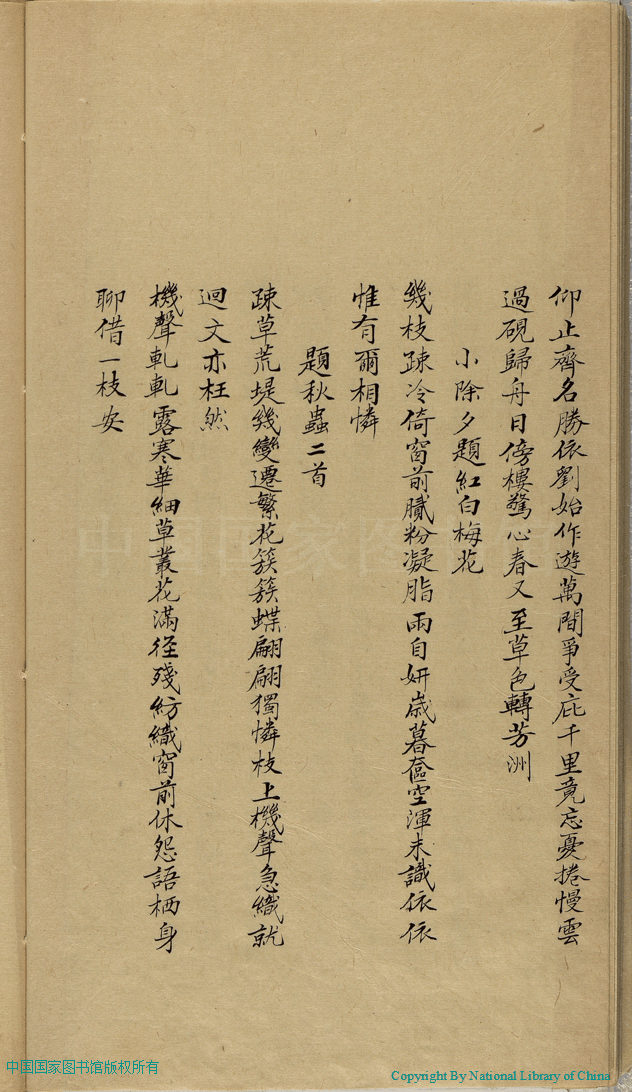 仰止齊名勝依劉始作遊萬間爭受庇千里竟忘憂捲慢雲
過硯歸舟日傍樓驚心春又至草色轉芳洲
小除夕題紅白梅花
幾枝疎冷倚窗前膩粉凝脂兩自妍歲暮奩空渾未識依依
惟有爾相憐
題秋蟲二首
疎草荒堤幾變遷繁花簇簇蝶翩翩獨憐枝上機聲急織就
迴文亦枉然
機聲軋軋露寒華細草叢花滿徑殘紡織窗前休怨語栖身
聊借一枝安
中国国家图书馆
中国国家图书馆版权所有
Copyright By National Library of China